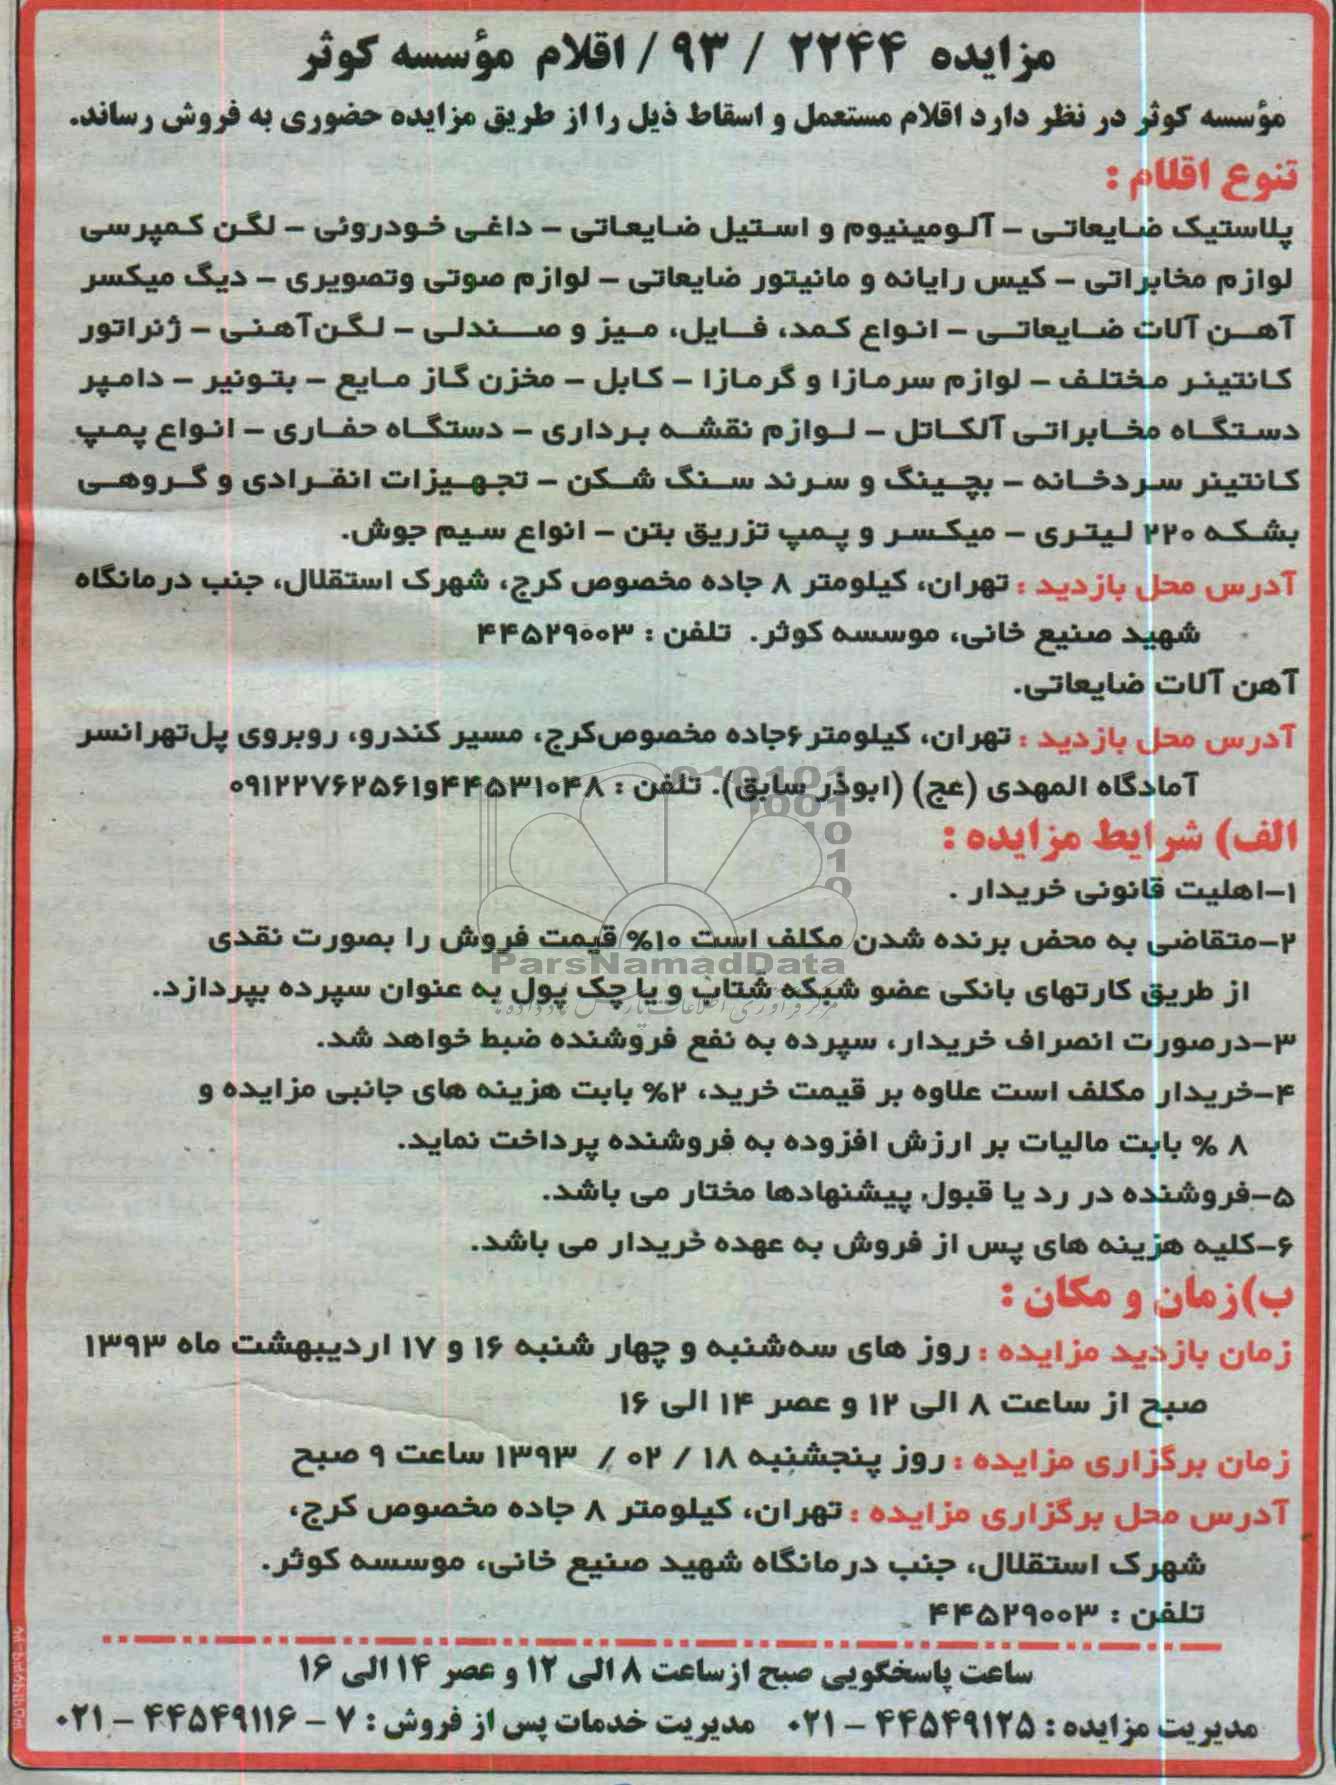 مزایده ۲۲۴۴ / ۹۳ / اقلام مؤسسه کوثر
مؤسسه کوثر در نظر دارد اقلام مستعمل و اسقاط ذیل را از طریق مزایده حضوری به فروش رساند.
تنوع اقلام :
پلاستیک ضایعاتی – آلومینیوم و استیل ضایعاتی – داغی خودروئی – لگن کمپرسی
لوازم مخابراتی – کیس رایانه و مانیتور ضایعاتی – لوازم صوتی وتصویری – دیگ میکسر
آهن آلات ضایعاتی – انواع کمد، فایل، میز و صندلی – لگن‌آهنی – ژنراتور
کانتینر مختلف – لوازم سرمازا و گرمازا – کابل – مخزن گاز مایع – بتونیر – دامپر
دستگاه مخابراتی آلکاتل – لوازم نقشه برداری – دستگاه حفاری – انواع پمپ
کانتینر سردخانه – بچینگ و سرند سنگ شکن – تجهیزات انفرادی و گروهی
بشکه ۲۲۰ لیتری – میکسر و پمپ تزریق بتن – انواع سیم جوش.
آدرس محل بازدید : تهران، کیلومتر ۸ جاده مخصوص کرج، شهرک استقلال، جنب درمانگاه
شهید صنیع خانی، موسسه کوثر. تلفن : ۴۴۵۲۹۰۰۳
آهن آلات ضایعاتی.
آدرس محل بازدید : تهران، کیلومتر۶جاده مخصوص‌کرج، مسیر کندرو، روبروی پل‌تهرانسر
آمادگاه المهدی (عج) (ابوذر سابق). تلفن : ۴۴۵۳۱۰۴۸و۰۹۱۲۲۷۶۲۵۶۱
الف) شرایط مزایده :
۱–اهلیت قانونی خریدار .
۲–متقاضی به محض برنده شدن مکلف است ۱۰% قیمت فروش را بصورت نقدی
ParsNamadData
از طریق کارتهای بانکی عضو شبکه شتاب و یا چک پول به عنوان سپرده بپردازد.
۳–درصورت انصراف خریدار، سپرده به نفع فروشنده ضبط خواهد شد.
۴–خریدار مکلف است علاوه بر قیمت خرید، ۲% بابت هزینه های جانبی مزایده و
۸ % بابت مالیات بر ارزش افزوده به فروشنده پرداخت نماید.
۵–فروشنده در رد یا قبول پیشنهادها مختار می باشد.
۶–کلیه هزینه های پس از فروش به عهده خریدار می باشد.
ب)زمان و مکان :
زمان بازدید مزایده : روز های سه‌شنبه و چهار شنبه ۱۶ و ۱۷ اردیبهشت ماه ۱۳۹۳
صبح از ساعت ۸ الی ۱۲ و عصر ۱۴ الی ۱۶
زمان برگزاری مزایده : روز پنجشنبه ۱۸ / ۰۲ / ۱۳۹۳ ساعت ۹ صبح
آدرس محل برگزاری مزایده : تهران، کیلومتر ۸ جاده مخصوص کرج،
شهرک استقلال، جنب درمانگاه شهید صنیع خانی، موسسه کوثر.
تلفن : ۴۴۵۲۹۰۰۳
ساعت پاسخگویی صبح ازساعت ۸ الی ۱۲ و عصر ۱۴ الی ۱۶
مدیریت مزایده : ۴۴۵۴۹۱۲۵ – ۰۲۱ مدیریت خدمات پس از فروش : ۷ – ۴۴۵۴۹۱۱۶ – ۰۲۱